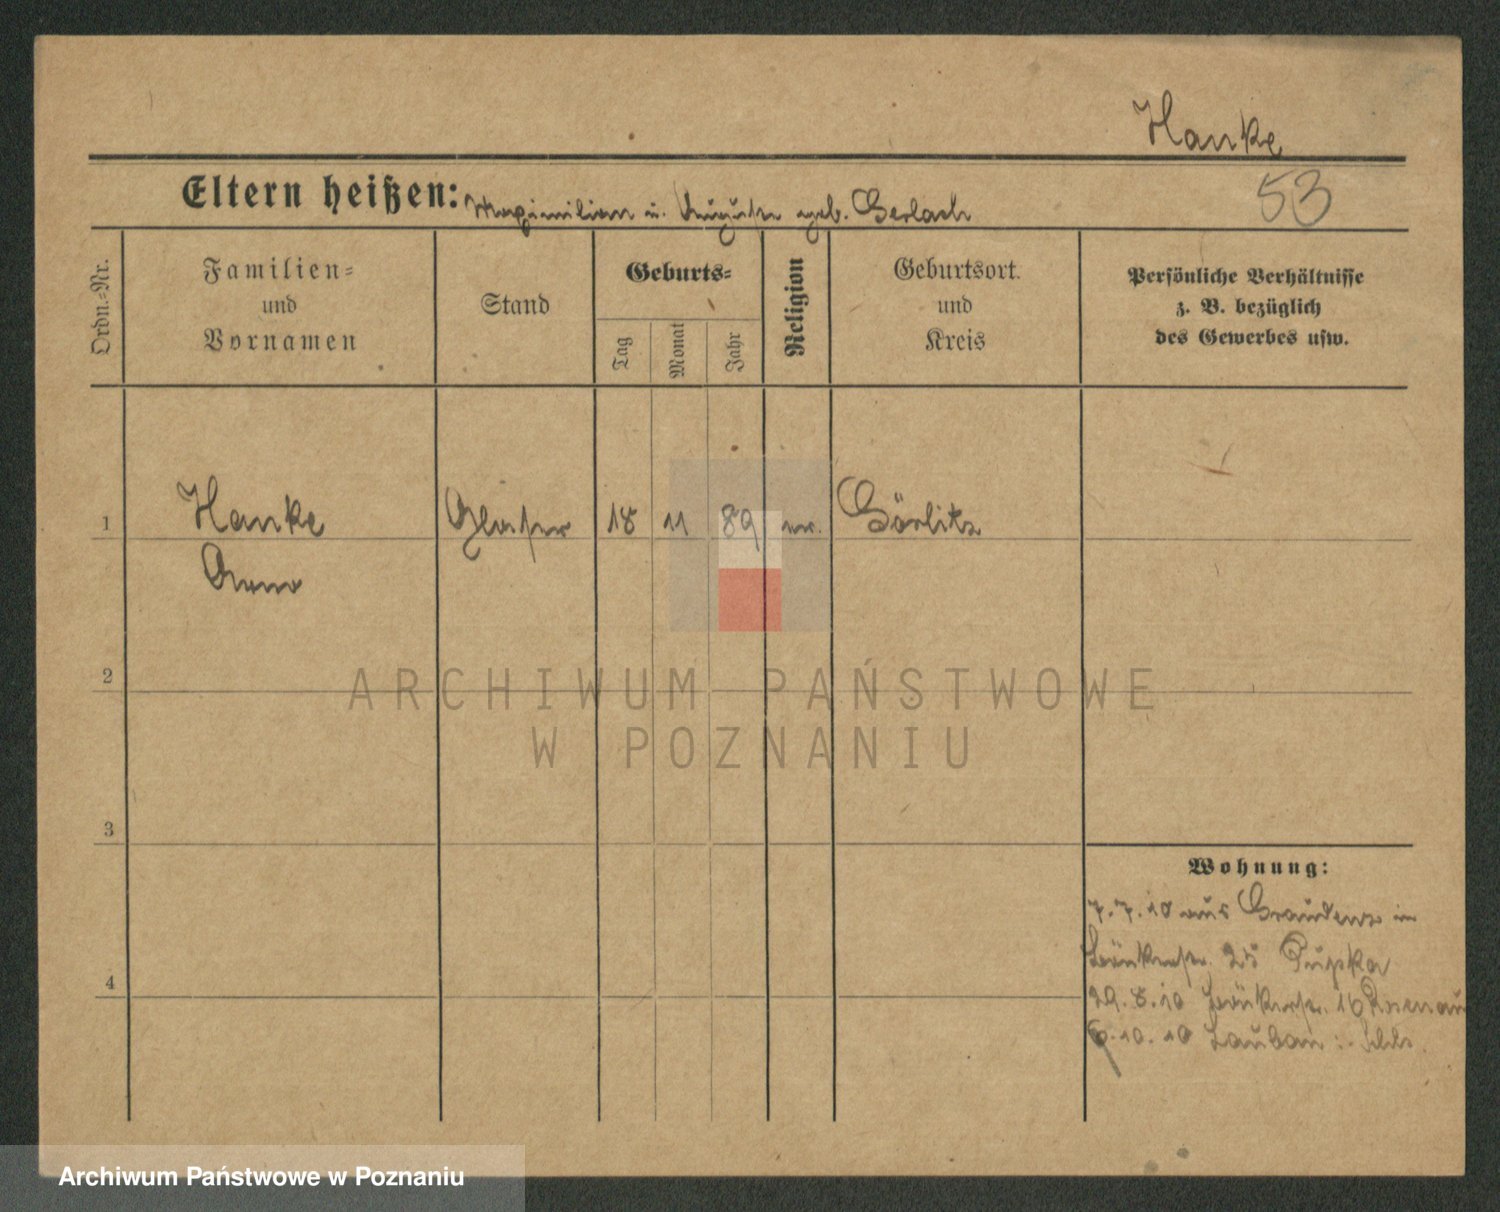 Hanke
Eltern heißen: Maximilian u. Auguste geb. Gerlach
53
Ordn.-Nr.
Familien-
und
Vornamen
Stand
Geburts-
Tag
Monat
Jahr
Religion
Geburtsort
und
Kreis
Persönliche Verhältnisse
z. B. bezüglich
des Gewerbes usw.
1
Hanke
Glaser
18
11
89
ev.
Görlitz
2
ARCHIWUM PAŃSTWOWE
W POZNANIU
3
4
Wohnung:
7.7.10 aus Graudenz in
25 Pupka
29.8.10 16
6.10.10 Lauban i. Schls.
Archiwum Państwowe w Poznaniu